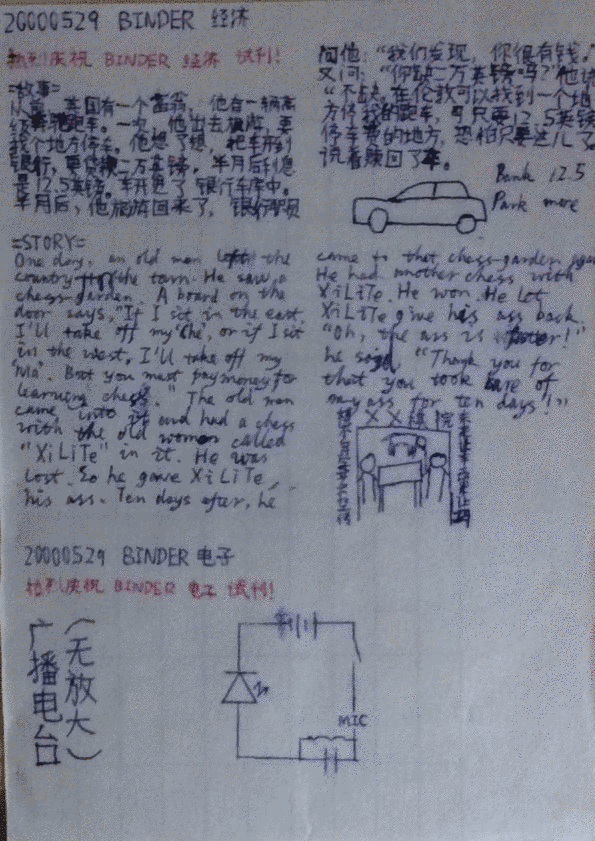 20000529 BINDER 经济
热烈庆祝 BINDER 经济 试刊!
=故事=
从前，英国有一个富翁，他有一辆高
级奔驰跑车。一次，他出去旅游，要
找个地方停车。他想了想，把车开到
银行，要贷款二万英镑，半月后利息
是12.5英镑。车开进了银行车库中。
半月后，他旅游回来了，银行职员
问他："我们发现，你很有钱。"
又问："你缺二万英镑吗？"他说
"不缺，在伦敦可以找到一个地
方停我的跑车，可只要12.5英镑
停车费的地方，恐怕只要这儿了。
说着赎回了车。
Bank 12.5
Park more
=STORY=
One day, an old man left the
country the town. He saw a
chess-garden. A board on the
door says, "If I sit in the east,
I'll take off my 'Che', or if I sit
in the west, I'll take off my
'Ma'. But you must pay money for
learning chess." The old man
came into it and had a chess
with the old woman called
"XiLiTe" in it. He was
lost. So he gave XiLiTe
his ass. Ten days after, he
came to that chess-garden
He had another chess with
XiLiTe. He won. He let
XiLiTe give his ass back.
"Oh, the ass is fatter!"
he said, "Thank you for
that you took care of
my ass for ten days!"
XX棋院
20000529 BINDER 电子
热烈庆祝 BINDER 电子 试刊!
(无放大)
广播电台
MIC